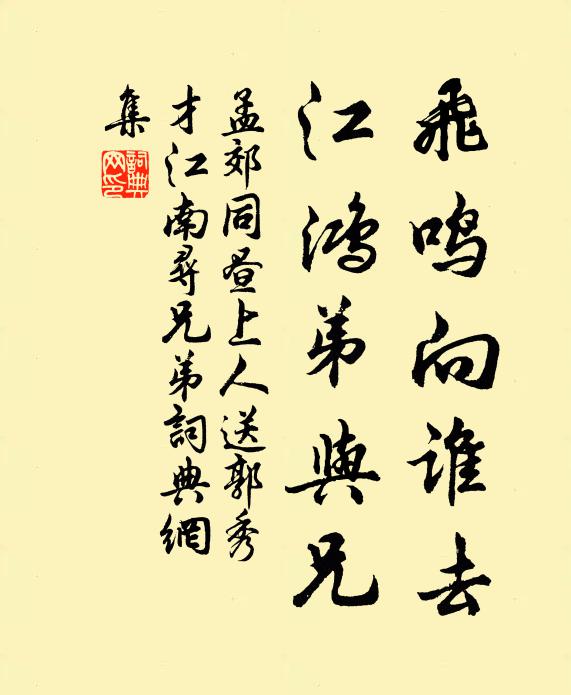 飛鸣向谁去
江鴻弟與兄
孟郊同昼上人送郭秀
才江南尋兄弟詞典網
集
詞典
网印